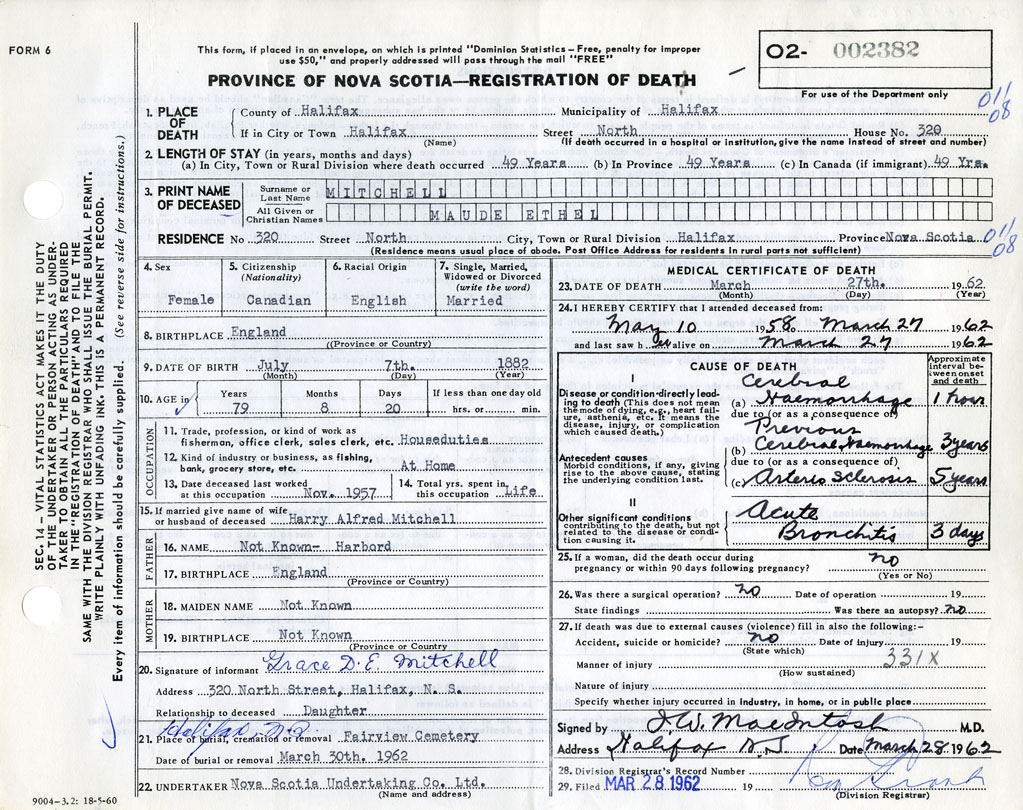 FORM 6
This form, if placed in an envelope, on which is printed "Dominion Statistics – Free, penalty for improper
use $50," and properly addressed will pass through the mail "FREE"
PROVINCE OF NOVA SCOTIA—REGISTRATION OF DEATH
02- 002382
For use of the Department only
011/08
1. PLACE OF DEATH
County of Halifax Municipality of Halifax
If in City or Town Halifax Street North House No. 320
(Name) (If death occurred in a hospital or institution, give the name instead of street and number)
2. LENGTH OF STAY (in years, months and days)
(a) In City, Town or Rural Division where death occurred 49 Years (b) In Province 49 Years (c) In Canada (if immigrant) 49 Yrs.
3. PRINT NAME OF DECEASED
Surname or Last Name MITCHELL
All Given or Christian Names MAUDE ETHEL
RESIDENCE No 320 Street North City, Town or Rural Division Halifax Province Nova Scotia
011/08
(Residence means usual place of abode. Post Office Address for residents in rural parts not sufficient)
4. Sex
Female
5. Citizenship (Nationality)
Canadian
6. Racial Origin
English
7. Single, Married, Widowed or Divorced (write the word)
Married
8. BIRTHPLACE England
((Province or Country)
9. DATE OF BIRTH July 7th. 1882
(Month) (Day) (Year)
10. AGE in Years Months Days If less than one day old
79 8 20 hrs. or min.
OCCUPATION
11. Trade, profession, or kind of work as
fisherman, office clerk, sales clerk, etc. Houseduties
12. Kind of industry or business, as fishing,
bank, grocery store, etc. At Home
13. Date deceased last worked
at this occupation Nov. 1957
14. Total yrs. spent in
this occupation Life
15. If married give name of wife
or husband of deceased Harry Alfred Mitchell
FATHER
16. NAME Not Known- Harbord
17. BIRTHPLACE England
(Province or Country)
MOTHER
18. MAIDEN NAME Not Known
19. BIRTHPLACE Not Known
(Province or Country)
20. Signature of informant Grace D. E. Mitchell
Address 320 North Street, Halifax, N. S.
Relationship to deceased Daughter
Halifax, N.S.
21. Place of burial, cremation or removal Fairview Cemetery
Date of burial or removal March 30th. 1962
22. UNDERTAKER Nova Scotia Undertaking Co. Ltd.
(Name and address)
9004-3.2: 18-5-60
MEDICAL CERTIFICATE OF DEATH
23. DATE OF DEATH March 27th. 1962
(Month) (Day) (Year)
24. I HEREBY CERTIFY that I attended deceased from:
May 10 1958 March 27 1962
and last saw h er alive on March 27 1962
CAUSE OF DEATH
Approximate interval between onset and death
I
Disease or condition directly leading to death (This does not mean the mode of dying, e.g., heart failure, asthenia, etc. It means the disease, injury, or complication which caused death.)
(a) Cerebral Haemorrhage 1 hour
due to (or as a consequence of)
Antecedent causes
Morbid conditions, if any, giving rise to the above cause, stating the underlying condition last.
(b) Previous Cerebral Haemorrhage 3 years
due to (or as a consequence of)
(c) Arterio Sclerosis 5 years
II
Other significant conditions contributing to the death, but not related to the disease or condition causing it.
Acute Bronchitis 3 days
25. If a woman, did the death occur during
pregnancy or within 90 days following pregnancy? no
(Yes or No)
26. Was there a surgical operation? no Date of operation 19
State findings Was there an autopsy? no
27. If death was due to external causes (violence) fill in also the following:-
Accident, suicide or homicide? no Date of injury 19
(State which)
Manner of injury 331X
(How sustained)
Nature of injury
Specify whether injury occurred in industry, in home, or in public place
Signed by J.W. MacIntosh M.D.
Address Halifax N.S. Date March 28 1962
28. Division Registrar's Record Number
29. Filed MAR 28 1962
(Division Registrar)
SEC. 14 – VITAL STATISTICS ACT MAKES IT THE DUTY
OF THE UNDERTAKER OR PERSON ACTING AS UNDER-
TAKER TO OBTAIN ALL THE PARTICULARS REQUIRED
IN THE "REGISTRATION OF DEATH" AND TO FILE THE
SAME WITH THE DIVISION REGISTRAR WHO SHALL ISSUE THE BURIAL PERMIT.
WRITE PLAINLY WITH UNFADING INK. THIS IS A PERMANENT RECORD.
Every item of information should be carefully supplied. (See reverse side for instructions.)